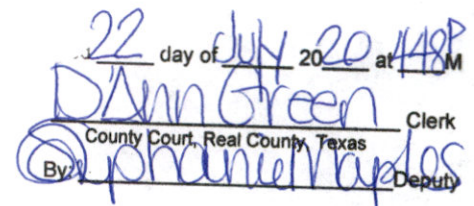 22 day of July 2020 at 448PM
D'Ann Green Clerk
County Court, Real County, Texas
By: Stephanie Maples Deputy